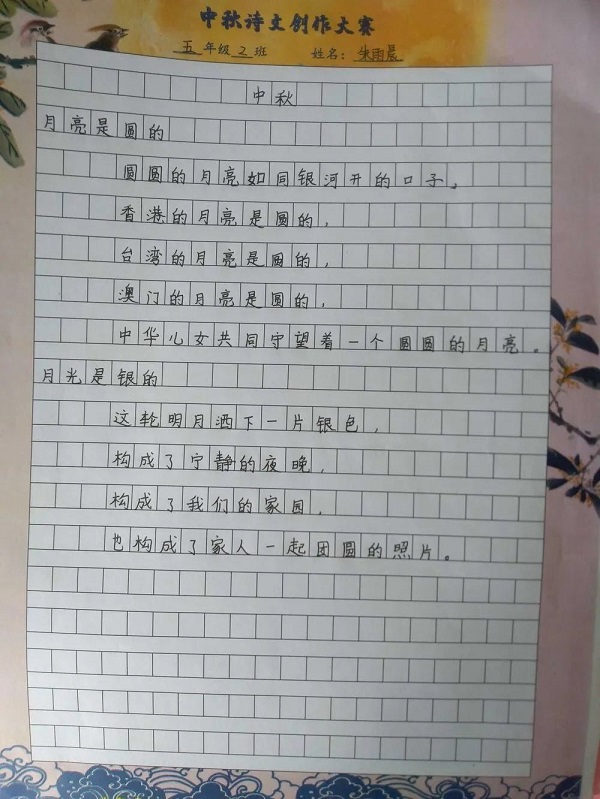 中秋诗文创作大赛
五年级2班 姓名：朱雨晨
中秋
月亮是圆的
圆圆的月亮如同银河开的口子，
香港的月亮是圆的，
台湾的月亮是圆的，
澳门的月亮是圆的，
中华儿女共同守望着一个圆圆的月亮。
月光是银的
这轮明月洒下一片银色，
构成了宁静的夜晚，
构成了我们的家园，
也构成了家人一起团圆的照片。